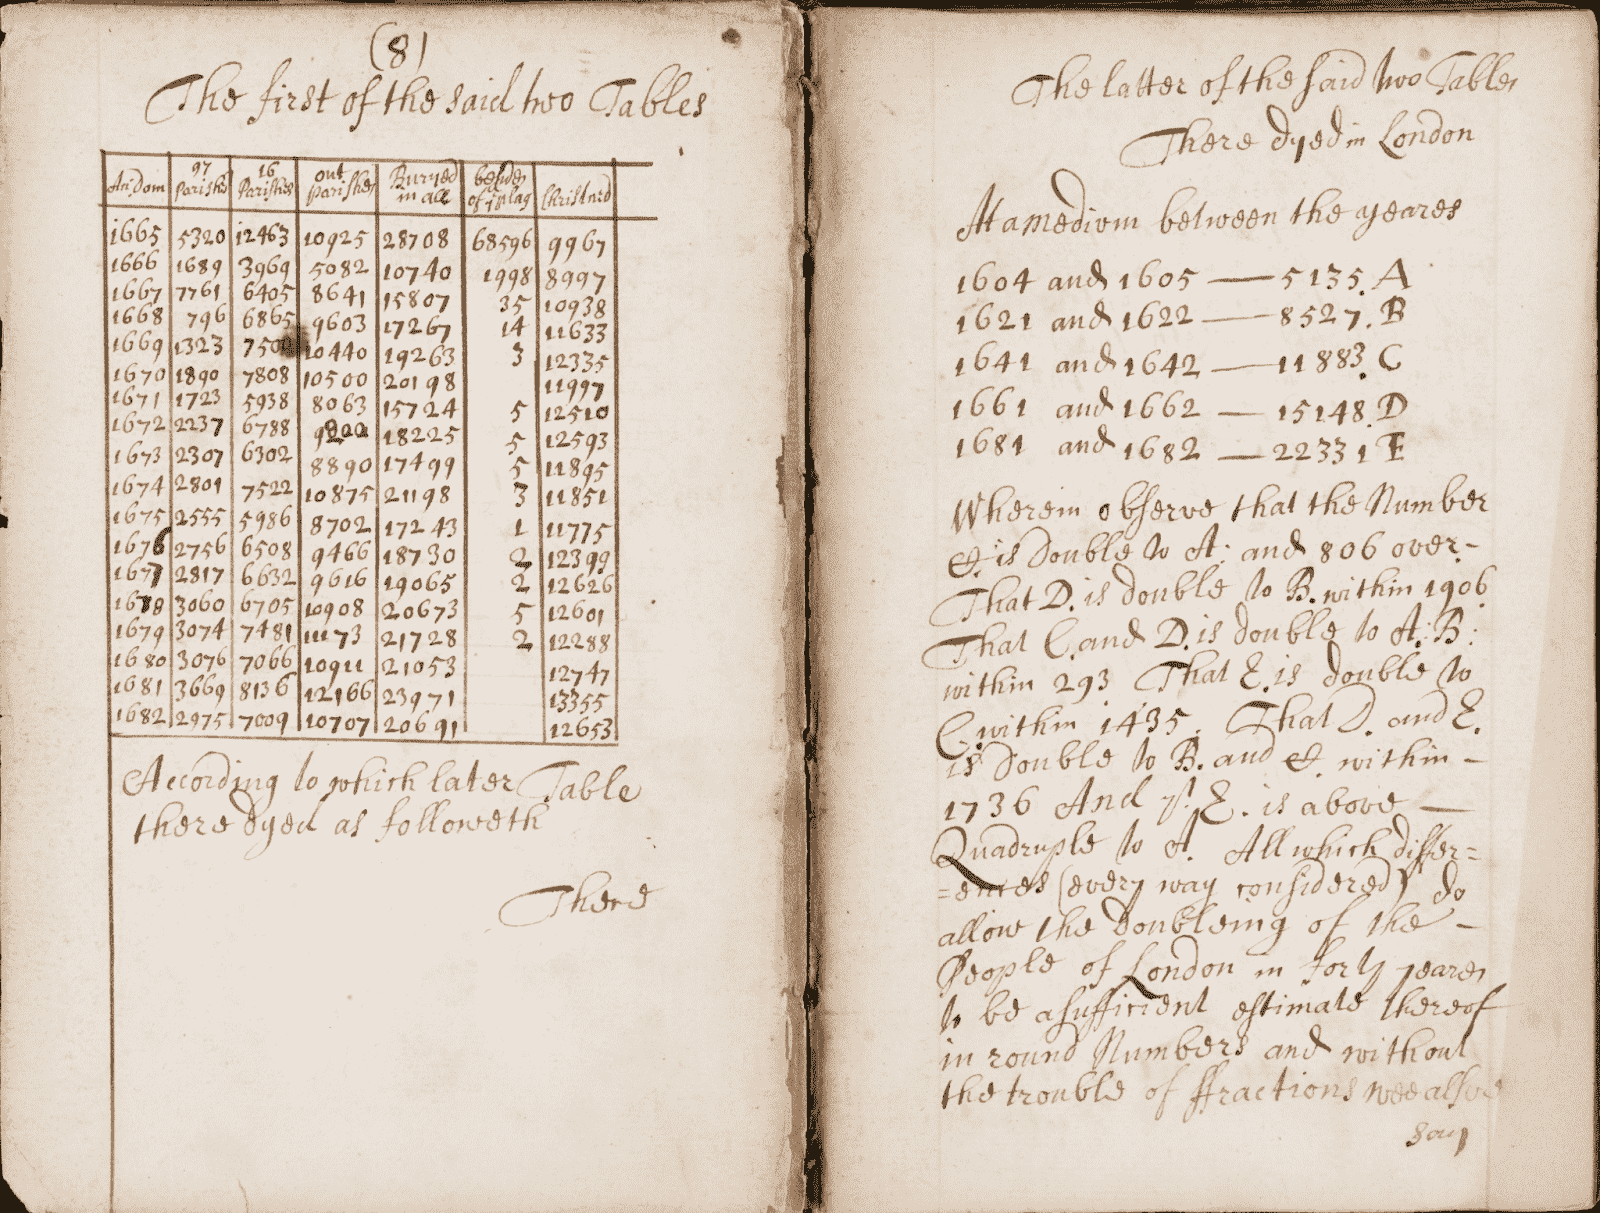 (8)
The first of the said two Tables
An°dom 97 Parishes 16 Parishes out parishes Buryed in all besides of ye plag Christned
1665 5320 12463 10925 28708 68596 9967
1666 1689 3969 5082 10740 1998 8997
1667 7761 6405 8641 15807 35 10938
1668 796 6865 9603 17267 14 11633
1669 1323 7500 10440 19263 3 12335
1670 1890 7808 10500 20198 11997
1671 1723 5938 8063 15724 5 12510
1672 2237 6788 9200 18225 5 12593
1673 2307 6302 8890 17499 5 11895
1674 2801 7522 10875 21198 3 11851
1675 2555 5986 8702 17243 1 11775
1676 2756 6508 9466 18730 2 12399
1677 2817 6632 9616 19065 2 12626
1678 3060 6705 10908 20673 5 12601
1679 3074 7481 11173 21728 2 12288
1680 3076 7066 10911 21053 12747
1681 3669 8136 12166 23971 13355
1682 2975 7009 10707 20691 12653
According to which later Table
there dyed as followeth
There
The latter of the said two Tables
There dyed in London
At a mediom between the yeares
1604 and 1605 — 5135. A
1621 and 1622 — 8527. B
1641 and 1642 — 11883. C
1661 and 1662 — 15148. D
1681 and 1682 — 22331 E
Wherein observe that the Number
E. is double to A: and 806 over-
That D. is double to B. within 1906
That C. and D. is double to A: B:
within 293 That E. is double to
C. within 1435. That D. and E.
is double to B. and E. within -
1736 And yt E. is above —
Quadruple to A. All which differ=
=ences (every way considered) do
allow the doubleing of the -
People of London in forty yeares
to be a sufficient estimate thereof
in round Numbers and without
the trouble of ffractions wee alsoe
say